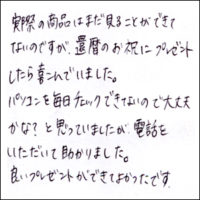 実際の商品はまだ見ることができて
ないのですが、還暦のお祝にプレゼント
したら喜こんでいました。
パソコンを毎日チェックできないので大丈夫
かな？と思っていましたが、電話を
いただいて助かりました。
良いプレゼントができてよかったです。